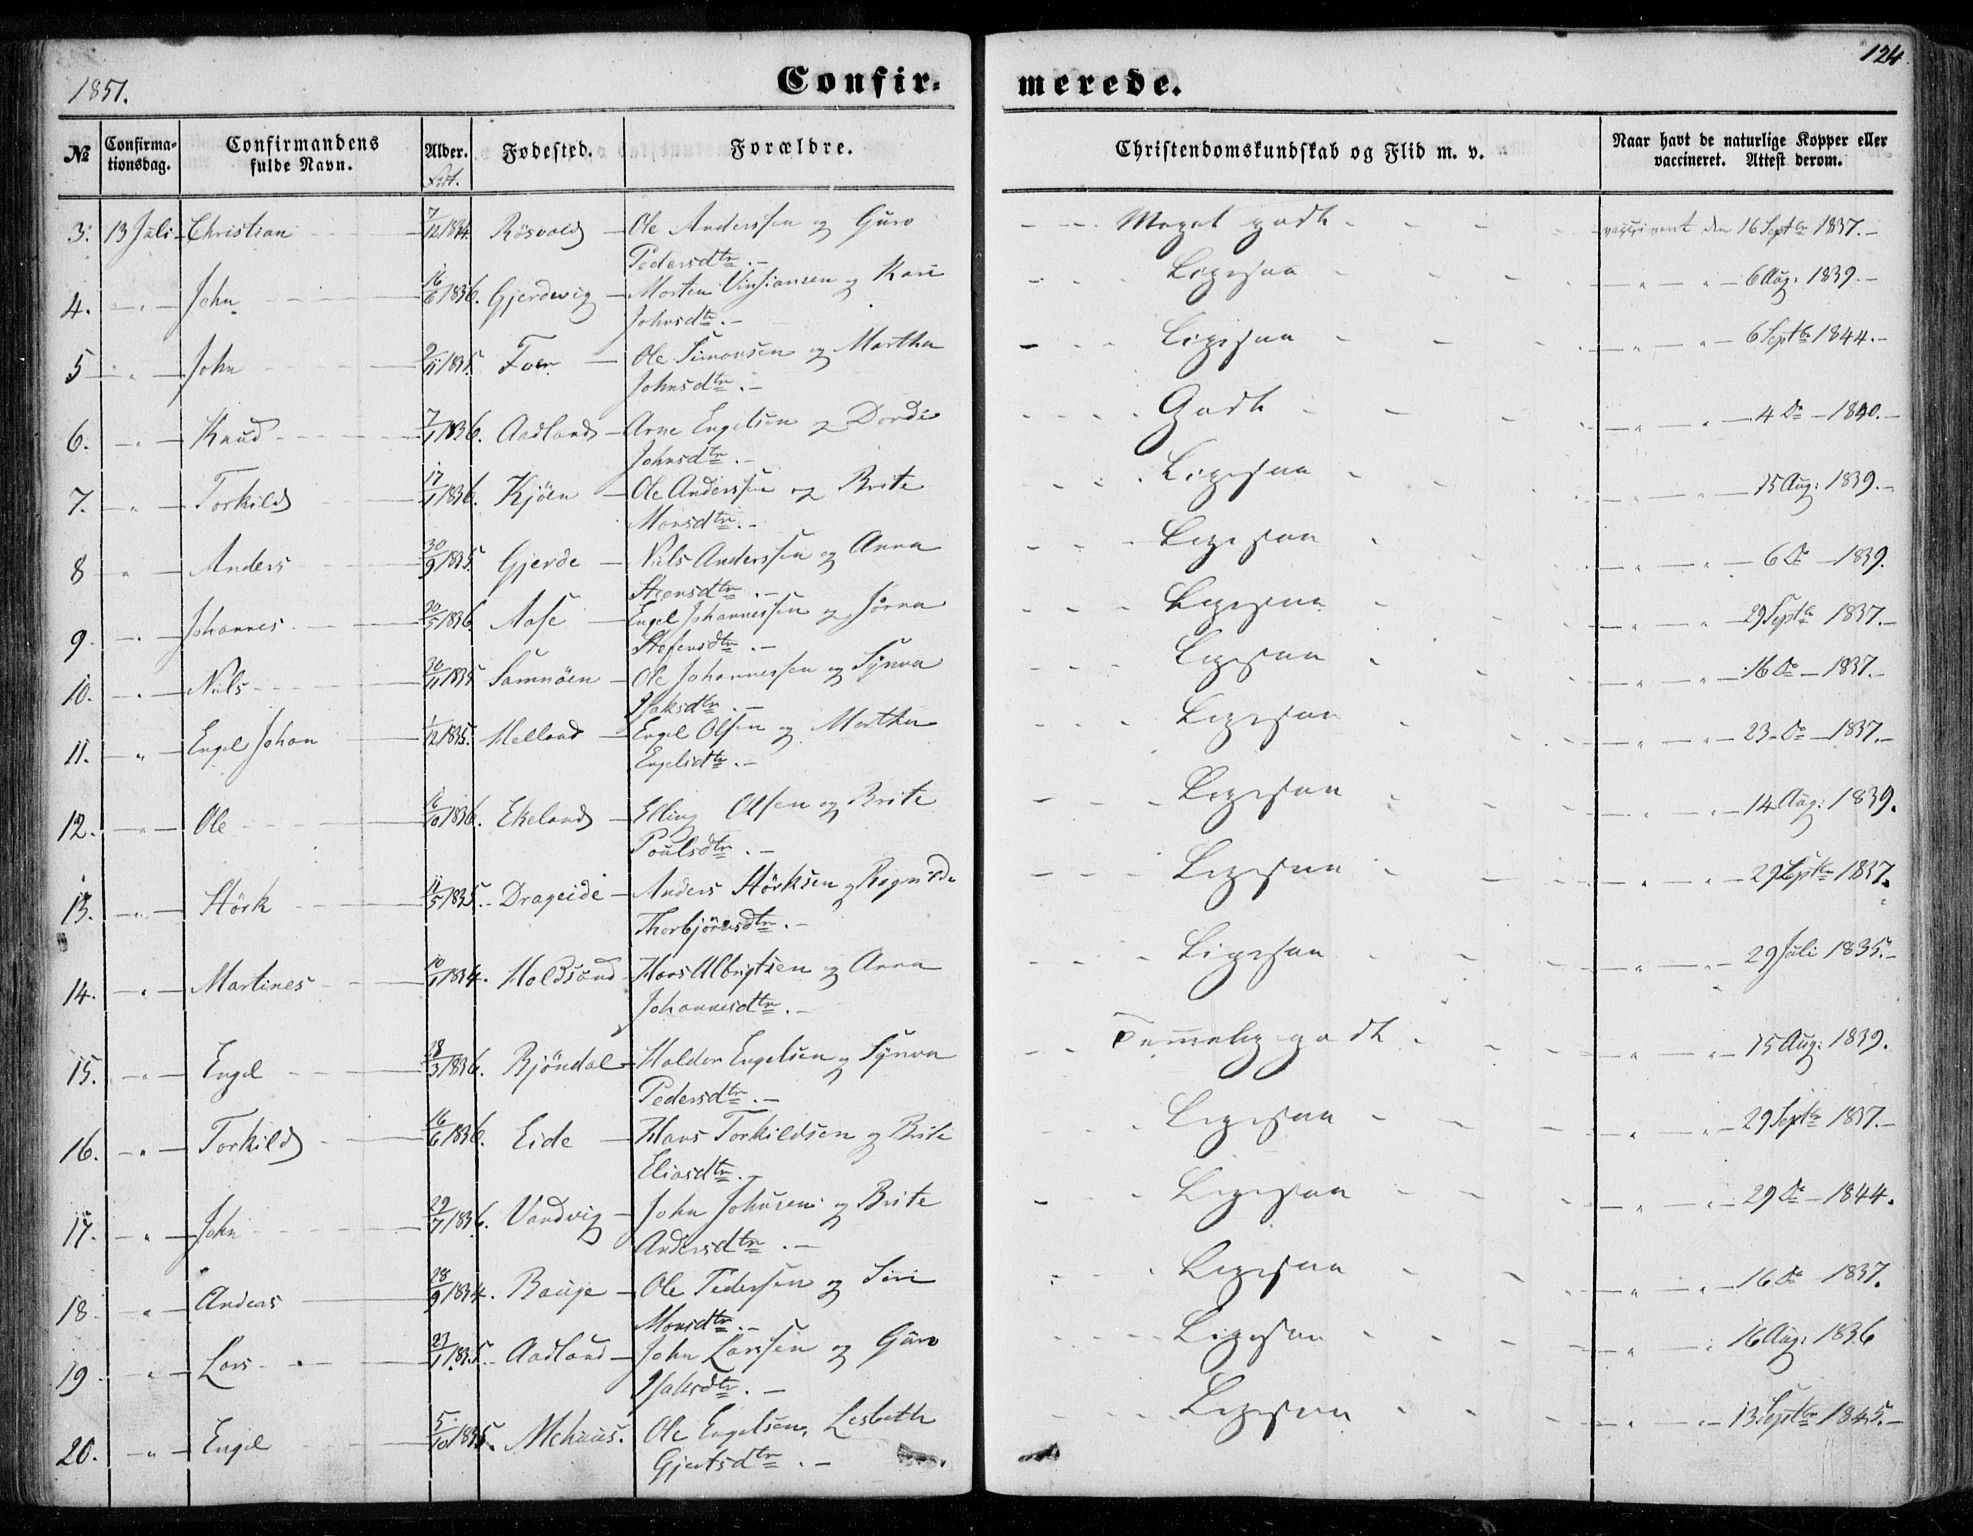 1851.
Confir-
merede.
124
№
Confirma-
tionsdag.
Confirmandens
fulde Navn.
Alder.
Fødested.
Forældre.
Christendomskundskab og Flid m. v.
Naar havt de naturlige Kopper eller
vaccineret. Attest derom.
3. 13 Juli Christian 7/12 1834 Røsvold Ole Anderssen og Guro
Pedersdtr. Meget godt vaccineret den 16 Septbr 1837.
4. " John 16/6 1836. Gjerdevig Morten Vinsiansen og Kari
Johnsdtr. Ligesaa " " 6 Aug: 1839.
5 " John 9/11 1835. Ole Simonsen og Martha
Johnsdtr. Ligesaa " " 6 Septbr 1844.
6. " Knud 7/1 1836. Aadland Arne Engelsen og Dordi
Johnsdtr. Godt " " 4 Do 1840.
7. " Torkild 17/1 1836. Kjöen Ole Anderssen og Brite
Monsdtr. Ligesaa " " 15 Aug: 1839.
8 " Anders 30/9 1835. Gjerde Nils Anderssen og Anna
Steensdtr. Ligesaa " " 6 Do 1839.
9. " Johannes 30/5 1836. Aase Engel Johannessen og Jörna
Stefensdtr. Ligesaa " " 29 Septbr 1837.
10. " Nils 20/11 1835 Samnöen Ole Johannessen og Synva
Isaksdtr. Ligesaa " " 16 Do 1837.
11. " Engel Johan 1/12 1835. Melland Engel Olsen og Martha
Engelsdtr. Ligesaa " " 23 Do 1837.
12. " Ole 16/10 1836. Ekeland Elling Olsen og Brite
Poulsdtr. Ligesaa " 14 Aug: 1839.
13. " Störk 11/5 1835. Drageide Anders Störksen og Ragnilde
Thorbjörnsdtr. Ligesaa " " 29 Septbr 1837.
14. " Martines 10/1 1834. Holdsund Hans Albrigtsen og Anna
Johannesdtr. Ligesaa " " 29 Juli 1835.
15. " Engel 18/3 1836. Bjöndal Haldor Engelsen og Synva
Pedersdtr. Temmelig godt " " 15 Aug: 1839.
16. " Torkild 16/6 1836. Eide Hans Torkildsen og Brite
Eliasdtr. Ligesaa " " 29 Septbr 1837.
17. " John 29/7 1836. Vandvig John Johnsen og Brite
Andersdtr. Ligesaa " " 29 Do 1844.
18 " Anders 28/9 1834. Bauge Ole Pedersen og Siri
Monsdtr. Ligesaa " " 16 Do 1837.
19 " Lars 1835 Aadland John Larssen og Guro
Isaksdtr. Ligesaa " 16 Aug: 1836
20. " Engel 5/10 1835. Mehuus. Ole Engelsen, Lisbeth
Gjertsdtr. Ligesaa " " 13 Septbr 1845.